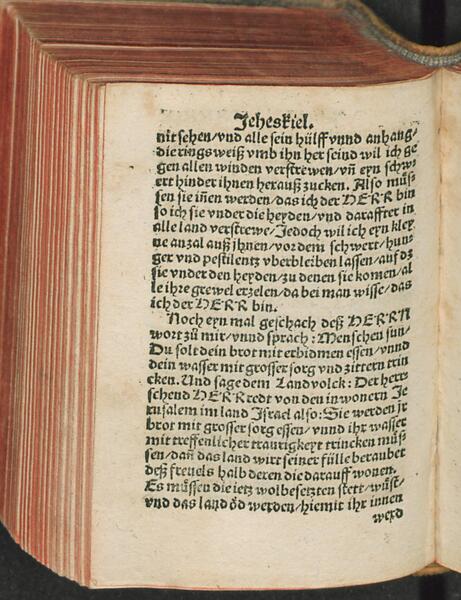 Jeheskiel.
nit sehen/vnd alle sein hülff vnnd anhang/
die rings weiß vmb ihn her seind wil ich ge
gen allen winden verstrewen/vñ eyn schw-
ert hinder ihnen herauß zucken. Also müs-
sen sie iñen werden/das ich der HERR bin
so ich sie vnder die heyden/vnd daraffter in
alle land verstrewe/Jedoch wil ich eyn kley
ne anzal auß jhnen/vor dem schwert/hun-
ger vnd pestilentz vberbleiben lassen/auf dz
sie vnder den heyden/zu denen sie komen/al
le ihre grewel erzelen/da bei man wisse/das
ich der HERR bin.
Noch eyn mal geschach deß HERRN
wort zů mir/vnd sprach: Menschen sun/
Du solt dein brot mit erbidmen essen/vnnd
dein wasser mit grosser sorg vnd zittern trin
cken. Und sage dem Landvolck: Der herr-
schend HERR redt von den inwonern Je
rusalem im land Jsrael also: Sie werden jr
brot mit grosser sorg essen/vnnd ihr wasser
mit treffenlicher traurigkeyt trincken müs-
sen/dañ das land wirt seiner fülle beraubet
deß freuels halb deren die darauff wonen.
Es müssen die ietz wolbesetzten stett/wůst/
vnd das land öd werden/hiemit ihr innen
werd